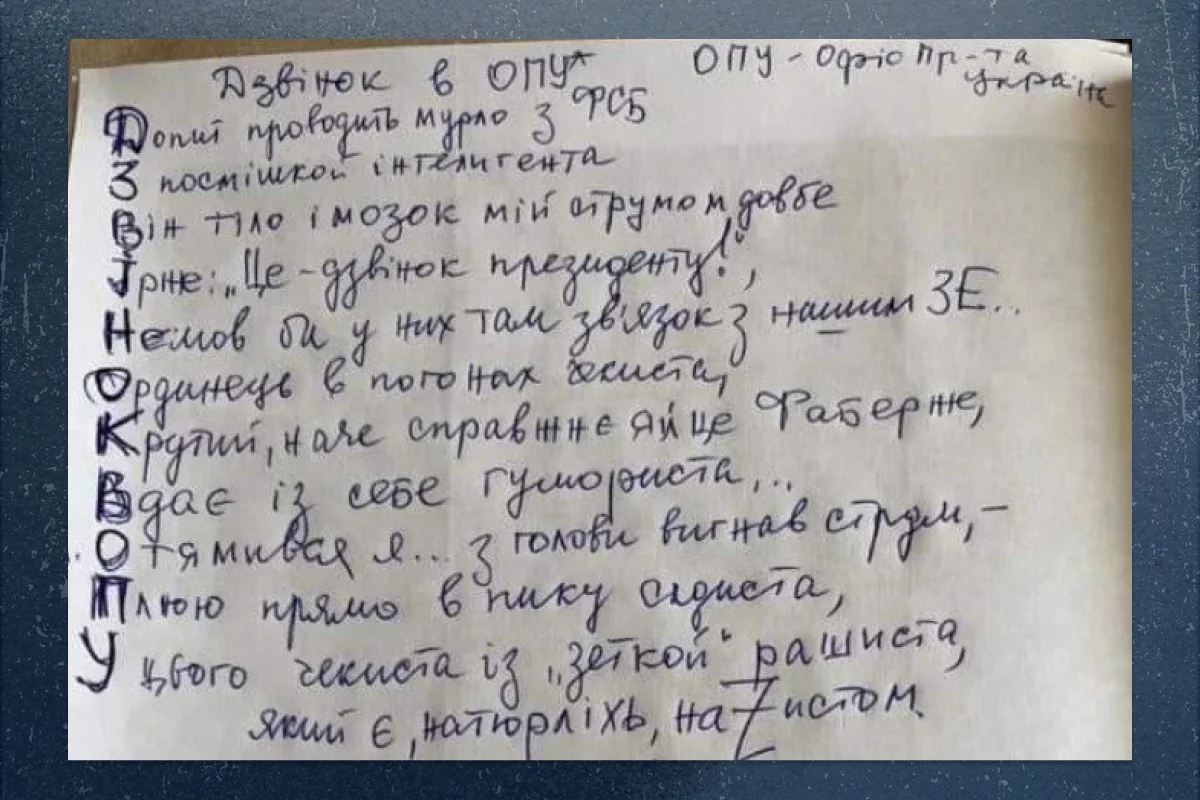 Дзвінок в ОПУ*
ОПУ - Офіс Пр-та
України
Допит проводить мурло з ФСБ
З посмішкой інтелигента
Він тіло і мозок мій струмом довбе
Ірже: „Це - дзвінок президенту!",
Немов би у них там зв'язок з нашим ЗЕ...
Ординець в погонах чекиста,
Крутий, наче справжнє яйце Фаберже,
Вдає із себе гумориста...
Отямився я... з голови вигнав струм, -
Плюю прямо в пику садиста,
У цього чекиста із „зеткой" рашиста,
який є, натюрліхь, наZистом.